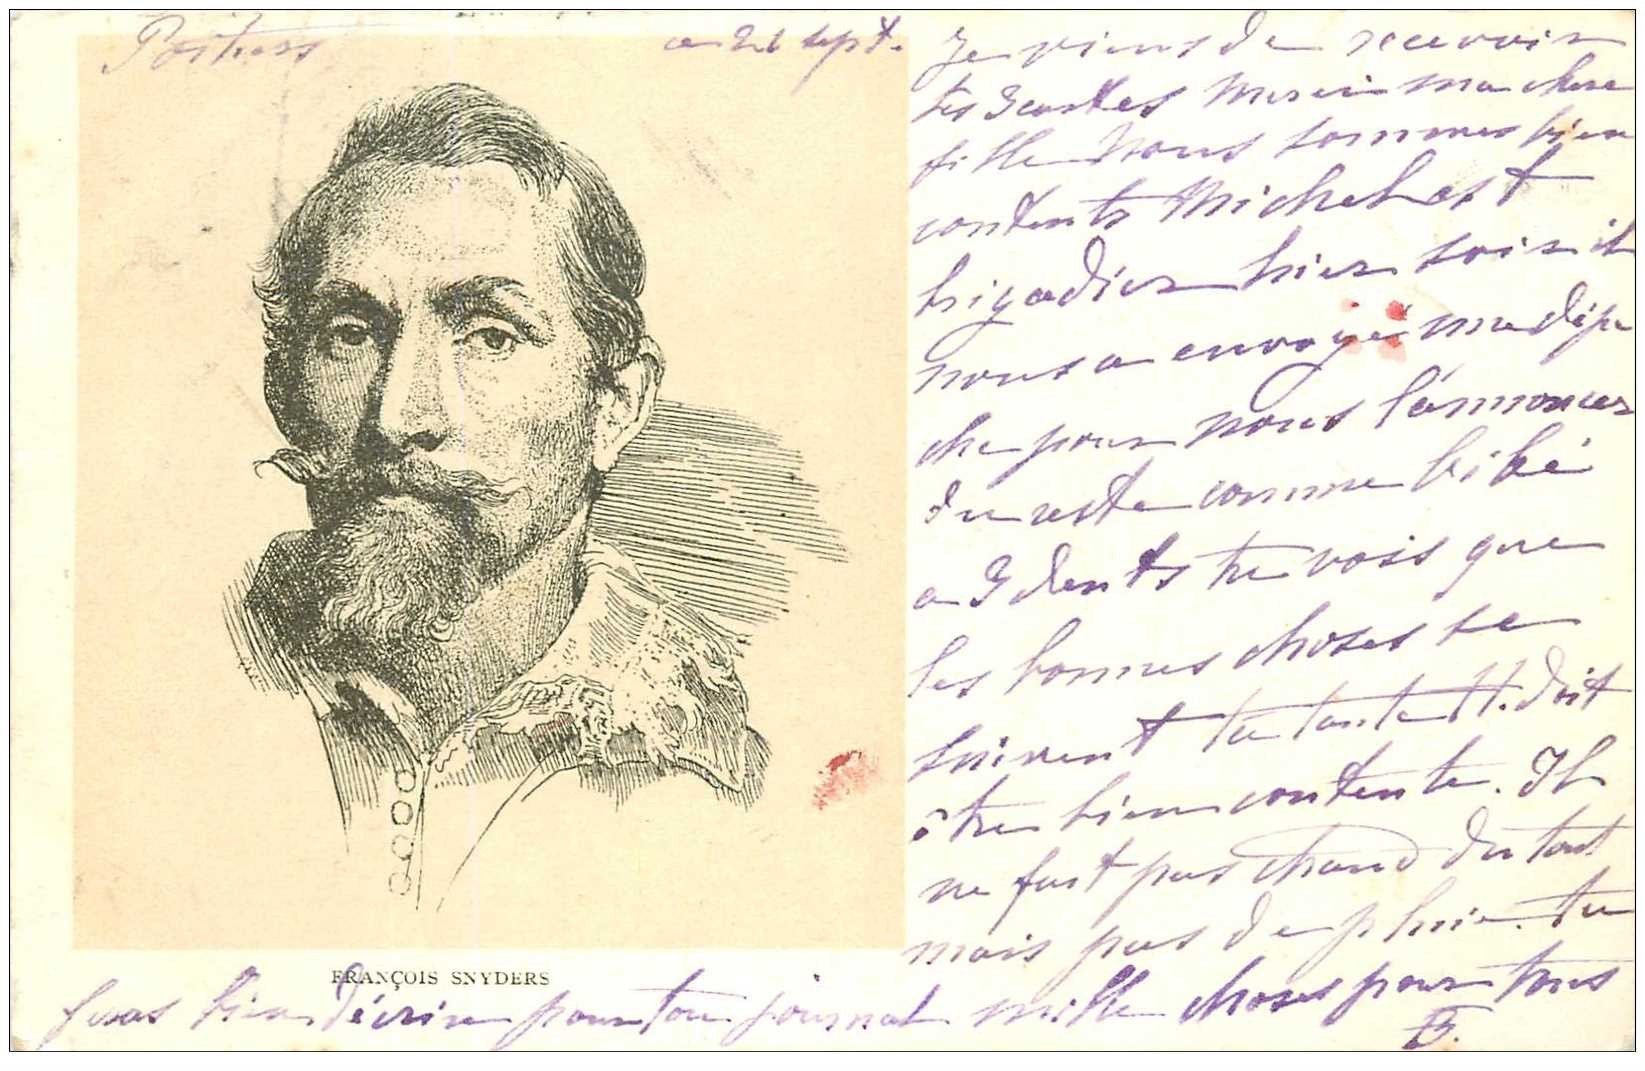 Poitiers ce 21 sept.
Je viens de recevoir
tes 3 cartes merci ma chere
fille Nous sommes bien
contents Michel est
brigadier hier soir il
nous a envoyé une dépe
che pour nous l'annoncer
du reste comme bébé
a 3 dents tu vois que
les bonnes choses se
suivent ta tante H. doit
être bien contente. Il
ne fait pas chaud du tout
mais pas de pluie. tu
FRANÇOIS SNYDERS
feras bien d'écrire pour ton journal mille choses pour tous
B.